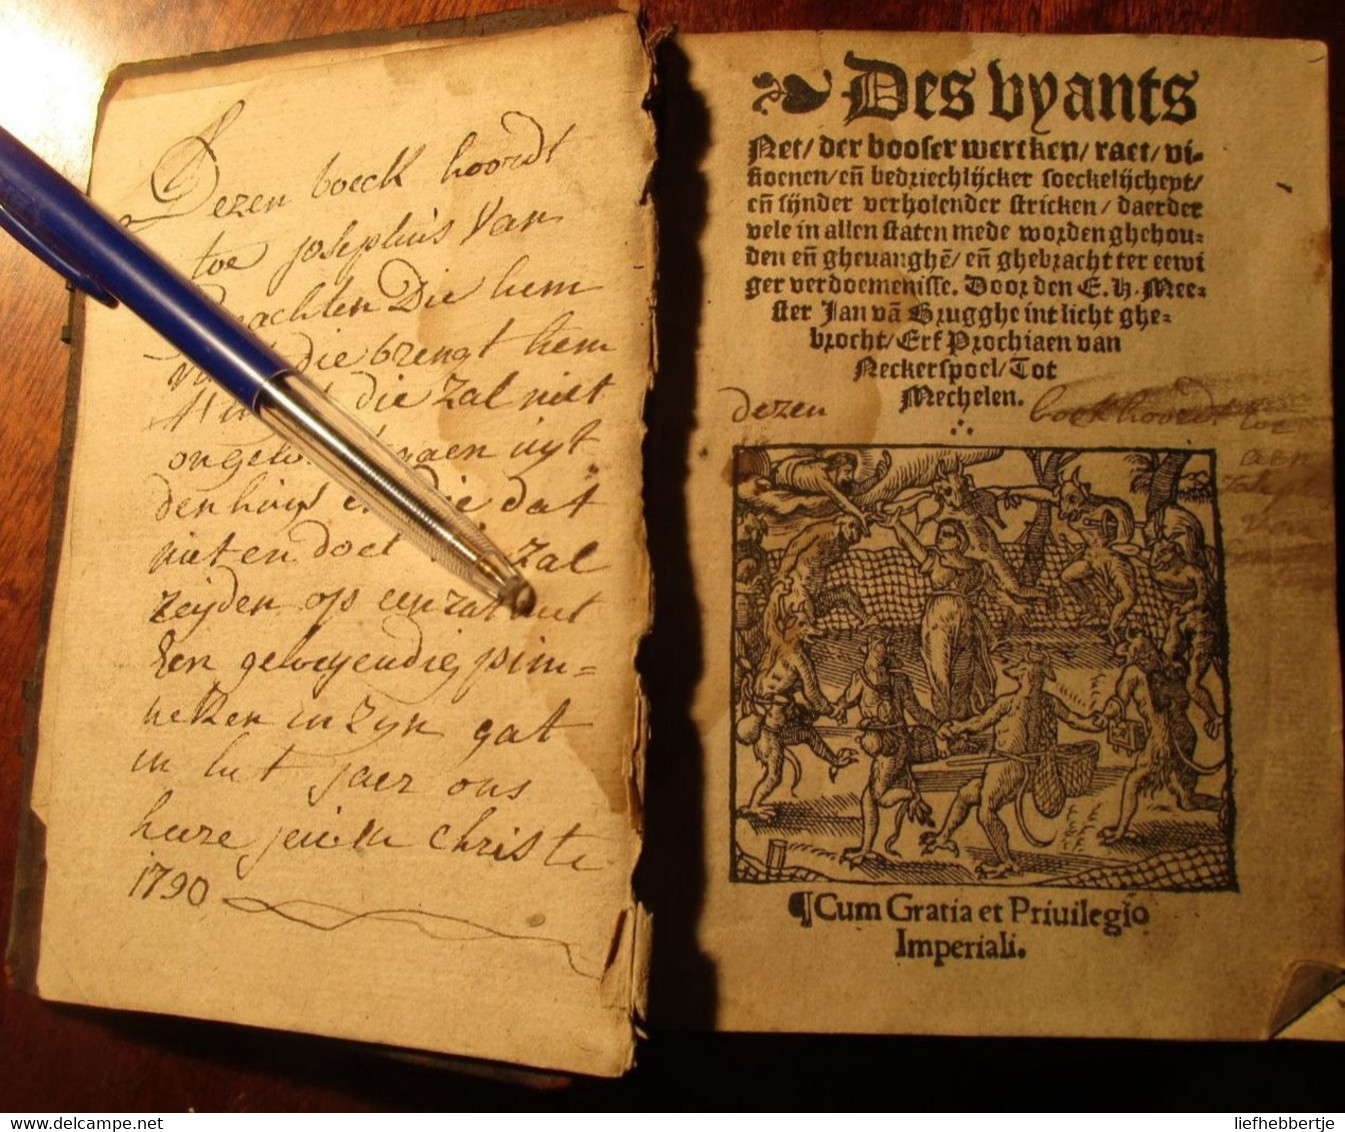 Dezen boeck hoordt
toe josephus Van
achten Die hem
die brengt hem
die zal niet
gaen uijt
den huijs dat
niet en doet zal
zeijden op een
Een geloeyendig pim=
neken in zijn gat
in het jaer ons
heere jesu Christi
1790
Des vyants
Net/ der booser wercken/ raet/ vi-
sioenen/ eñ bedriechlijcker soeckelijcheyt/
eñ sijnder verholender stricken/ daerder
vele in allen staten mede worden ghehou-
den eñ gheuanghē/ eñ ghebracht ter eewi
ger verdoemenisse. Door den E. H. Mee-
ster Jan vā Brugghe int licht ghe-
brocht/ Erf Prochiaen van
Neckerspoel/ Tot
Mechelen.
dezen boek hoordt toe
aen
¶Cum Gratia et Priuilegio
Imperiali.
delcampe.net
liefhebbertje